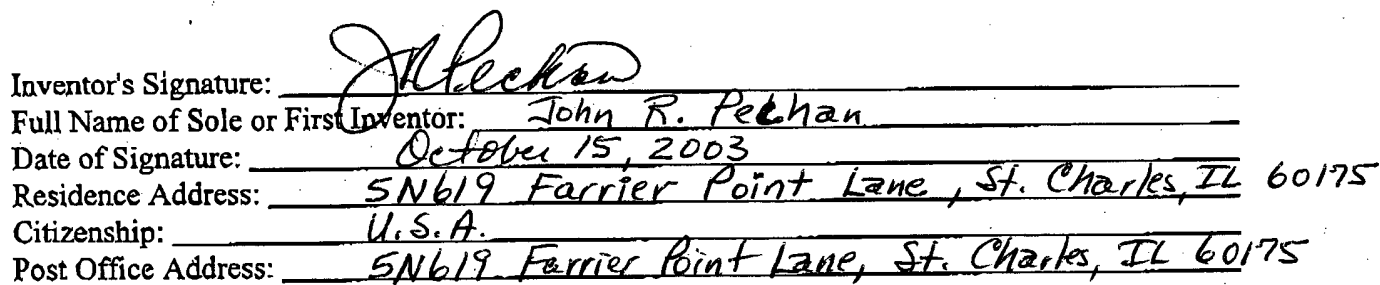 Inventor's Signature: JRPechan
Full Name of Sole or First Inventor: John R. Pechan
Date of Signature: October 15, 2003
Residence Address: 5N619 Farrier Point Lane, St. Charles, IL 60175
Citizenship: U.S.A.
Post Office Address: 5N619 Farrier Point Lane, St. Charles, IL 60175